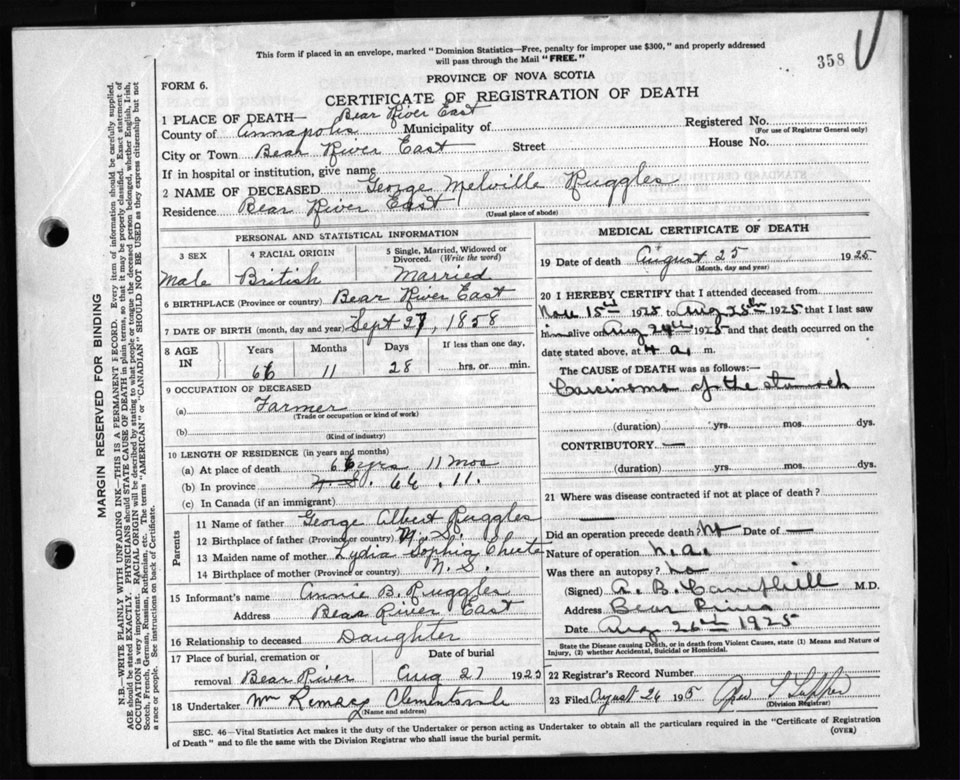 This form if placed in an envelope, marked "Dominion Statistics—Free, penalty for improper use $300," and properly addressed
will pass through the Mail "FREE."
358
PROVINCE OF NOVA SCOTIA
FORM 6.
CERTIFICATE OF REGISTRATION OF DEATH
1 PLACE OF DEATH— Bear River East
County of Annapolis Municipality of Registered No.
(For use of Registrar General only)
City or Town Bear River East Street House No.
If in hospital or institution, give name
2 NAME OF DECEASED George Melville Ruggles
Residence Bear River East
(Usual place of abode)
PERSONAL AND STATISTICAL INFORMATION
3 SEX 4 RACIAL ORIGIN 5 Single, Married, Widowed or
Divorced. (Write the word)
Male British Married
6 BIRTHPLACE (Province or country) Bear River East
7 DATE OF BIRTH (month, day and year) Sept 27, 1858
8 AGE IN Years Months Days If less than one day,
66 11 28 hrs. or min.
9 OCCUPATION OF DECEASED
(a) Farmer
(Trade or occupation or kind of work)
(b)
(Kind of industry)
10 LENGTH OF RESIDENCE (in years and months)
(a) At place of death 66 yrs 11 mos
(b) In province N. S. 66 . 11.
(c) In Canada (if an immigrant)
Parents
11 Name of father George Albert Ruggles
12 Birthplace of father (Province or country) N. S.
13 Maiden name of mother Lydia Sophia
14 Birthplace of mother (Province or country) N. S.
15 Informant's name Annie B. Ruggles
Address Bear River East
16 Relationship to deceased Daughter
17 Place of burial, cremation or Date of burial
removal Bear River Aug 27 1925
18 Undertaker Wm Clementsvale
(Name and address)
MEDICAL CERTIFICATE OF DEATH
19 Date of death August 25 1925
(Month, day and year)
20 I HEREBY CERTIFY that I attended deceased from
15th 1925 to Aug 25th 1925 that I last saw
him alive on Aug 24th 1925 and that death occurred on
date stated above, at 4 a. m.
The CAUSE of DEATH was as follows:—
Carcinoma of the stomach
(duration) yrs. mos. dys.
CONTRIBUTORY —
(duration) yrs. mos. dys.
21 Where was disease contracted if not at place of death?
—
Did an operation precede death? No Date of —
Nature of operation n.a.
Was there an autopsy? no
(Signed) A. B. Campbell M.D.
Address Bear River
Date Aug 26th 1925
State the Disease causing Death, or in death from Violent Causes, state (1) Means and Nature of
Injury, (2) whether Accidental, Suicidal or Homicidal.
22 Registrar's Record Number
23 Filed August 26 195
(Division Registrar)
SEC. 46—Vital Statistics Act makes it the duty of the Undertaker or person acting as Undertaker to obtain all the particulars required in the "Certificate of Registration
of Death" and to file the same with the Division Registrar who shall issue the burial permit.
(OVER)
MARGIN RESERVED FOR BINDING
N.B.—WRITE PLAINLY WITH UNFADING INK—THIS IS A PERMANENT RECORD. Every item of information should be carefully supplied.
AGE should be stated EXACTLY. PHYSICIANS should STATE CAUSE OF DEATH in plain terms, so that it may be properly classified. Exact statement of
OCCUPATION is very important. RACIAL ORIGIN will be described by stating to what people or tongue the deceased person belonged, whether English, Irish,
Scotch, French, German, Russian, Ruthenian, etc. The terms "AMERICAN" or "CANADIAN" SHOULD NOT BE USED as they express citizenship but not
a race or people. See instructions on back of Certificate.